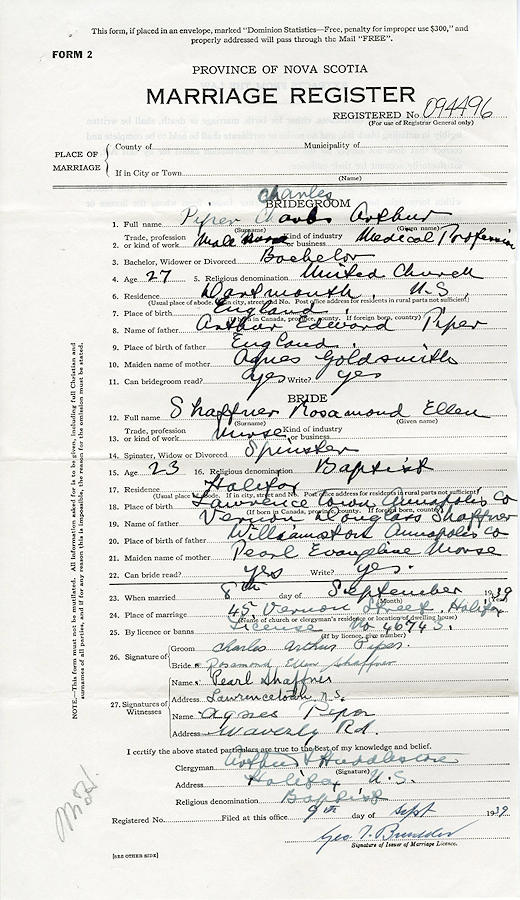 This form, if placed in an envelope, marked "Dominion Statistics—Free, penalty for improper use $300," and
properly addressed will pass through the Mail "FREE".
FORM 2
PROVINCE OF NOVA SCOTIA
MARRIAGE REGISTER
REGISTERED No. 094496
(For use of Registrar General only)
PLACE OF MARRIAGE
County of Municipality of
If in City or Town
(Name)
Charles
BRIDEGROOM
1. Full name Piper Charles Arthur
(Surname) (Given name)
2. Trade, profession or kind of work Male Nurse Kind of industry or business Medical Profession
3. Bachelor, Widower or Divorced Bachelor
4. Age 27 5. Religious denomination United Church
6. Residence Dartmouth, N.S.
(Usual place of abode. If in city, street and No. Post office address for residents in rural parts not sufficient)
7. Place of birth England
(If born in Canada, province, county. If foreign born, country)
8. Name of father Arthur Edward Piper
9. Place of birth of father England
10. Maiden name of mother Agnes Goldsmith
11. Can bridegroom read? yes Write? yes
BRIDE
12. Full name Shaffner Rosamond Ellen
(Surname) (Given name)
13. Trade, profession or kind of work Nurse Kind of industry or business
14. Spinster, Widow or Divorced Spinster
15. Age 23 16. Religious denomination Baptist
17. Residence Halifax
(Usual place of abode. If in city, street and No. Post office address for residents in rural parts not sufficient)
18. Place of birth Lawrencetown Annapolis Co
(If born in Canada, province, county. If foreign born, country)
19. Name of father Vernon Douglas Shaffner
20. Place of birth of father Williamston Annapolis Co
21. Maiden name of mother Pearl Evangeline Morse
22. Can bride read? yes Write? yes.
23. When married 8th day of September 1939
(Month)
24. Place of marriage 45 Vernon Street. Halifax
(Name of church or clergyman's residence or location of dwelling house)
25. By licence or banns License No 46745.
(If by licence, give number)
26. Signature of
Groom Charles Arthur Piper.
Bride Rosamond Ellen Shaffner
27. Signatures of Witnesses
Name Pearl Shaffner
Address Lawrencetown, N.S.
Name Agnes Piper
Address Waverly Rd.
I certify the above stated particulars are true to the best of my knowledge and belief.
Clergyman
(Signature)
Address Halifax N.S.
Religious denomination Baptist
Registered No. Filed at this office 9th day of Sept 1939
Geo. T.
Signature of Issuer of Marriage Licence.
[SEE OTHER SIDE]
NOTE.—This form must not be mutilated. All information asked for is to be given, including full Christian and
surnames of all parties, and if for any reason this is impossible, the reason for the omission must be stated.